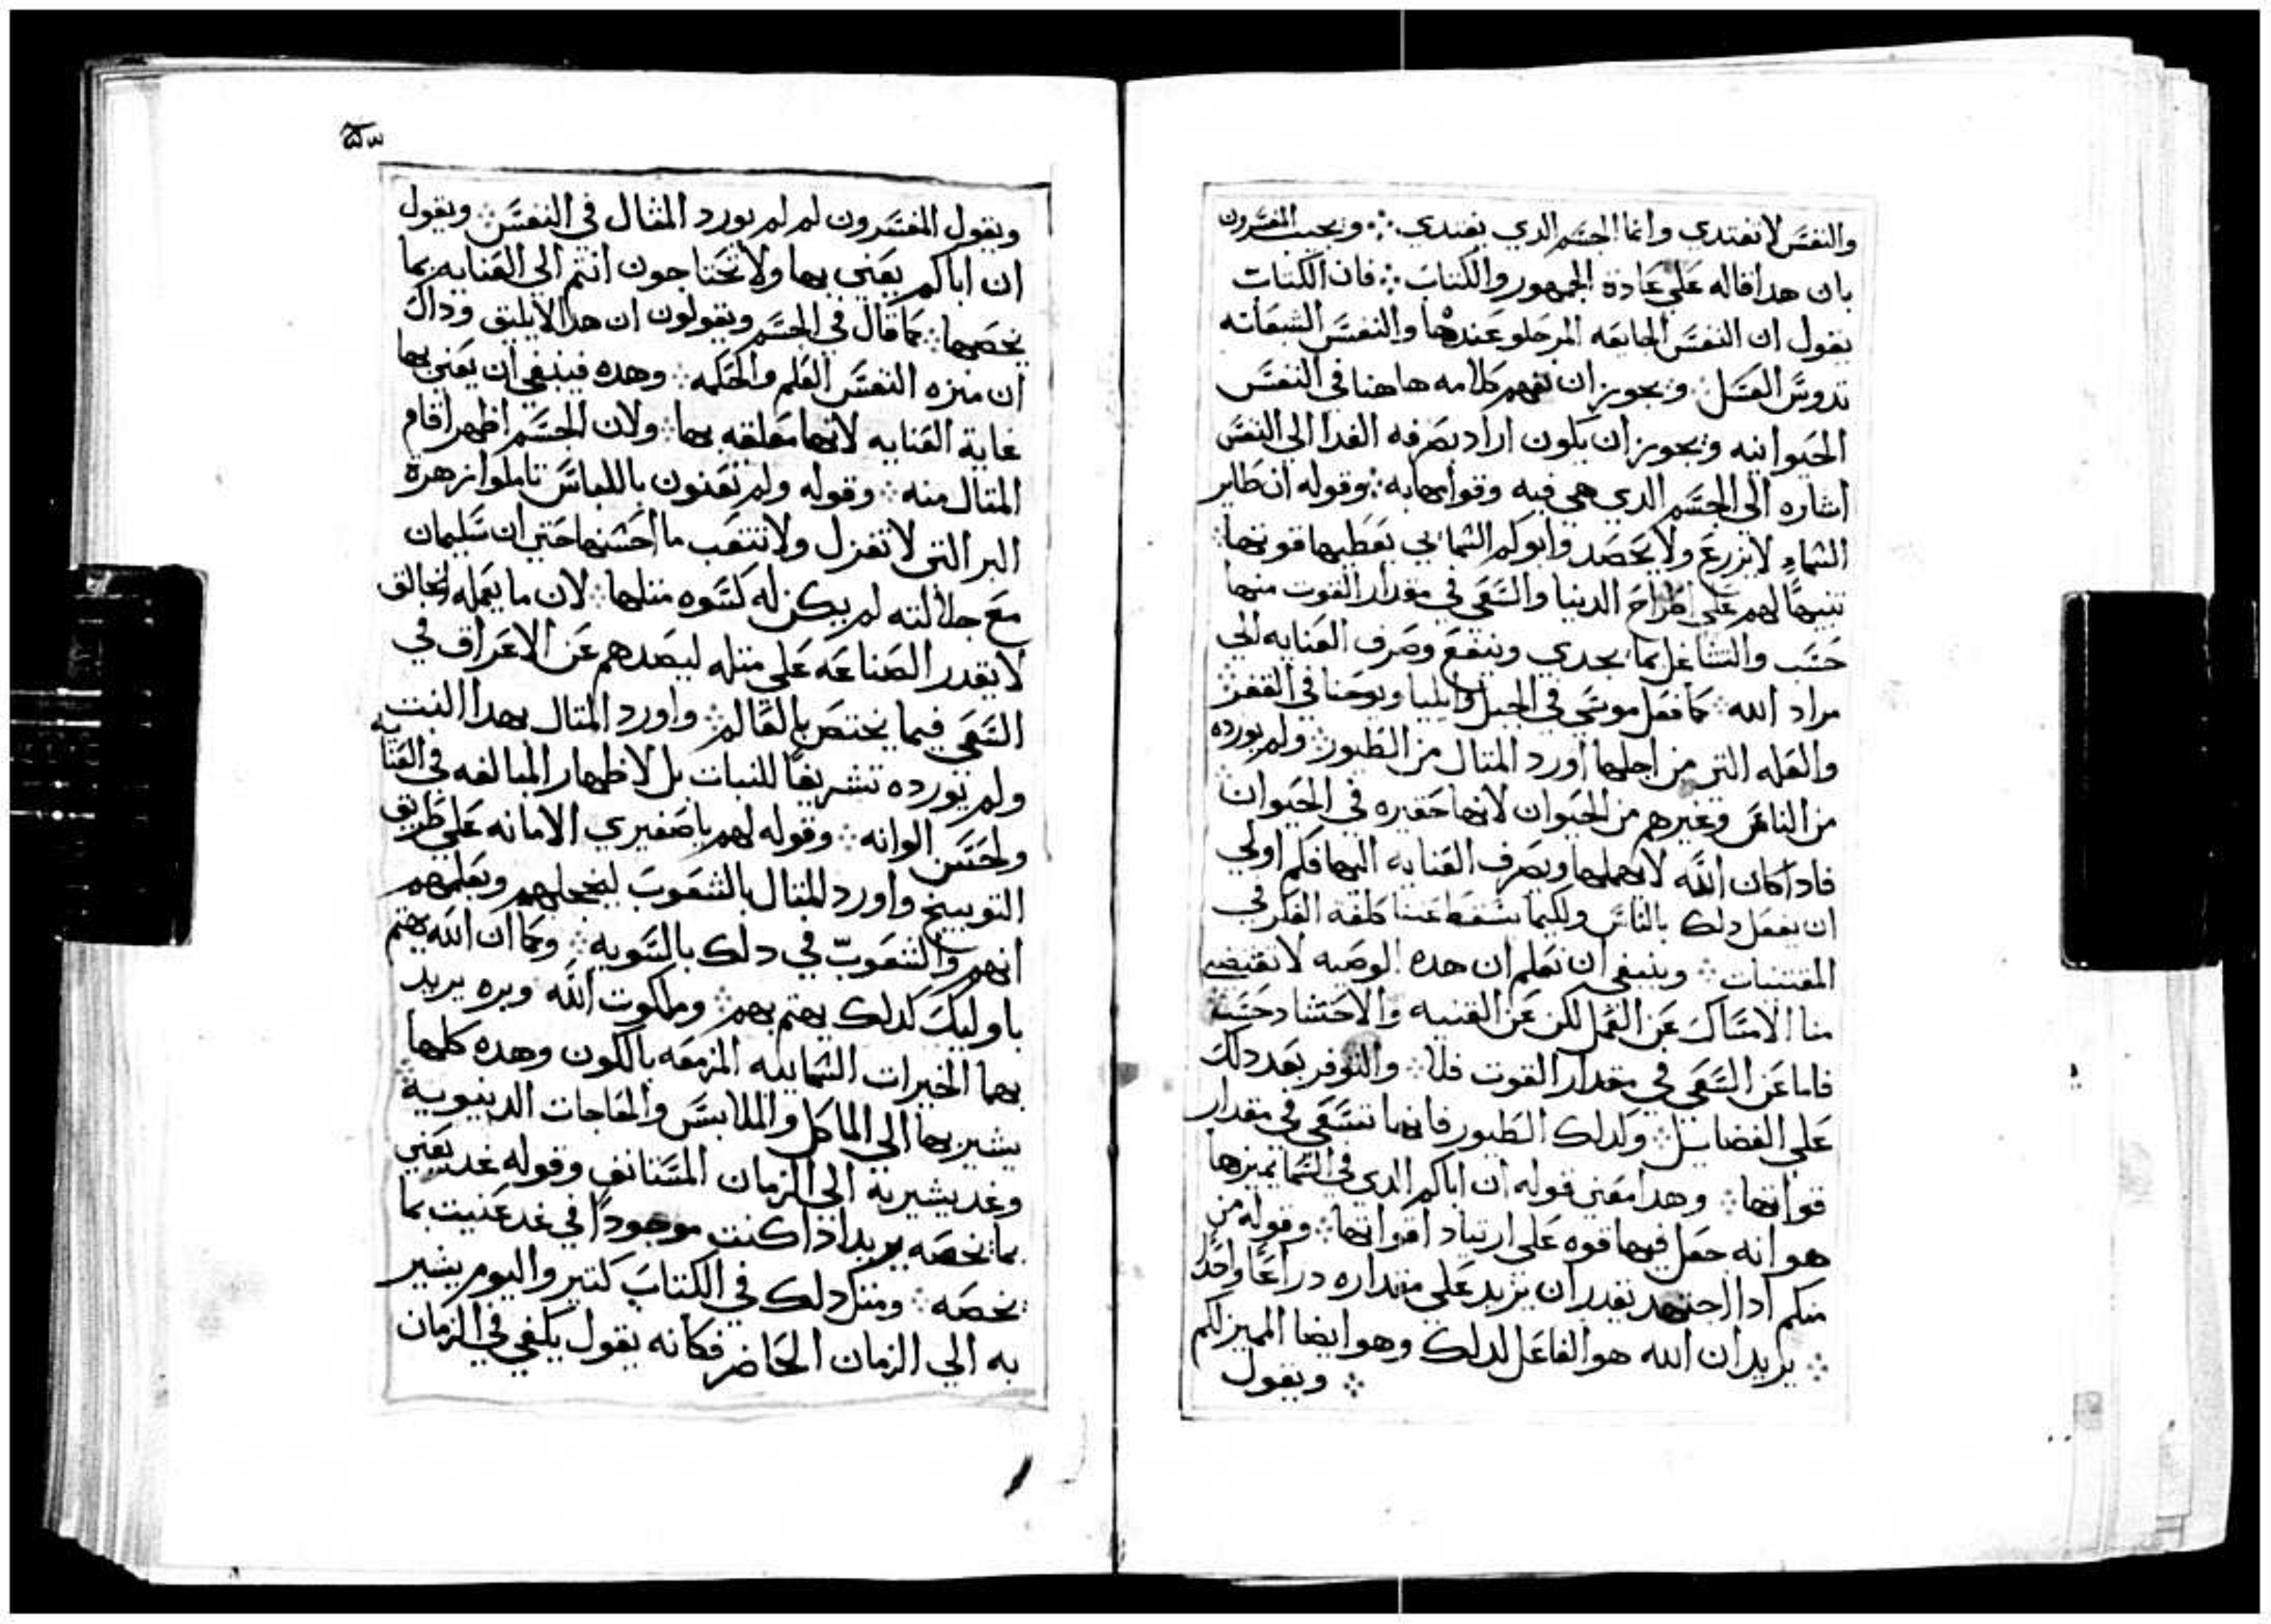 والنفس لا تغتدي وانما الجسم الدي يغتدي ܀ ويجيب المفسرون
بان هدا قاله علي عادة الجمهور والكتاب ܀ فان الكتاب
يقول ان النفس الجايعه المر حلو عندها والنفس الشبعانه
تدوس العسل ܀ ويجوز ان تفهم كلامه هاهنا في النفس
الحيوانيه ويجوز ان يكون اراد بصرفه الغدا الي النفس
اشاره الي الجسم الدي هي فيه وقوامها به ܀ وقوله ان طاير
السماء لا يزرع ولا يحصد وابوكم السمايي يعطيها قوتها ܀
تنبيهًا لهم علي اطراح الدنيا والسعي في مقدار القوت منها
حسب والتشاغل بما يجدي وينفع وصرف العنايه الي
مراد الله ܀ كما فعل موسي في الجبل وايليا ويوحنا في القفر ܀
والعله التي من اجلها اورد المتال من الطيور ܀ ولم يورده
من الناس وغيرهم من الحيوان لانها حقيره في الحيوان
فادا كان الله لا يهملها ويصرف العنايه اليها فكم اولي
ان يفعل دلك بالناس ولكيما يسقط عننا كلفة الفكر في
المقتنيات ܀ وينبغي ان تعلم ان هده الوصيه لا تقتضي
منا الامساك عن العمل لكن عن القنيه والاحتشاد حسب
فاما عن السعي في مقدار القوت فلا ܀ والتوفر بعد دلك
علي الفضايل ܀ ولدلك الطيور فانها تسعي في مقدار
قواتها ܀ وهدا معني قوله ان اباكم الدي في السما يميزها
هو انه جعل فيها قوه علي ارتياد اقواتها ܀ وقوله من
منكم ادا اجتهد يقدر ان يزيد علي مقداره دراعًا واحدًا
܀ يريد ان الله هو الفاعل لدلك وهو ايضا المميز لكم
܀ ويقول
٥٣
ويقول المفسرون لم لم يورد المثال في النفس ܀ ويقول
ان اباكم يعني بها ولا تحتاجون انتم الي العنايه بما
يخصها ܀ كما قال في الجسم ويقولون ان هدا لا يليق وداك
ان ميزه النفس العلم والحكمه ܀ وهده فينبغي ان يعني بها
غاية العنايه لانها معلقه بها ܀ ولان الجسم اظهر اقام
المتال منه ܀ وقوله ولم تعنون باللباس تاملوا زهرة
البر التي لا تغزل ولا تتعب ما احسنها حتي ان سليمان
مع جلالته لم يكن له كسوه متلها ܀ لان ما يعمله الخالق
لا يقدر الصناعه علي متله ليصدهم عن الاغراق في
السعي فيما يختص بالعالم ܀ واورد المتال بهدا النبت
ولم يورده تشريفًا للنبات بل لاظهار المبالغه في العنايه
ولحسن الوانه ܀ وقوله لهم يا صغيري الامانه علي طريق
التوبيخ واورد المتال بالشعوب ليخجلهم ويعلمهم
انهم والشعوب في دلك بالسويه ܀ وكما ان الله يهتم
باوليك كدلك يهتم بهم ܀ وملكوت الله وبره يريد
بهما الخيرات السماييه المزمعه بالكون وهده كلها
يشير بها الي الماكل والملابس والحاجات الدنيويه ܀
وغد يشير به الي الزمان المستانف وقوله غد يعني
بما يخصه يريد اذا كنت موجودًا في غد عنيت بما
يخصه ܀ ومتل دلك في الكتاب كتير واليوم يشير
به الي الزمان الحاضر فكانه يقول يكفي في الزمان